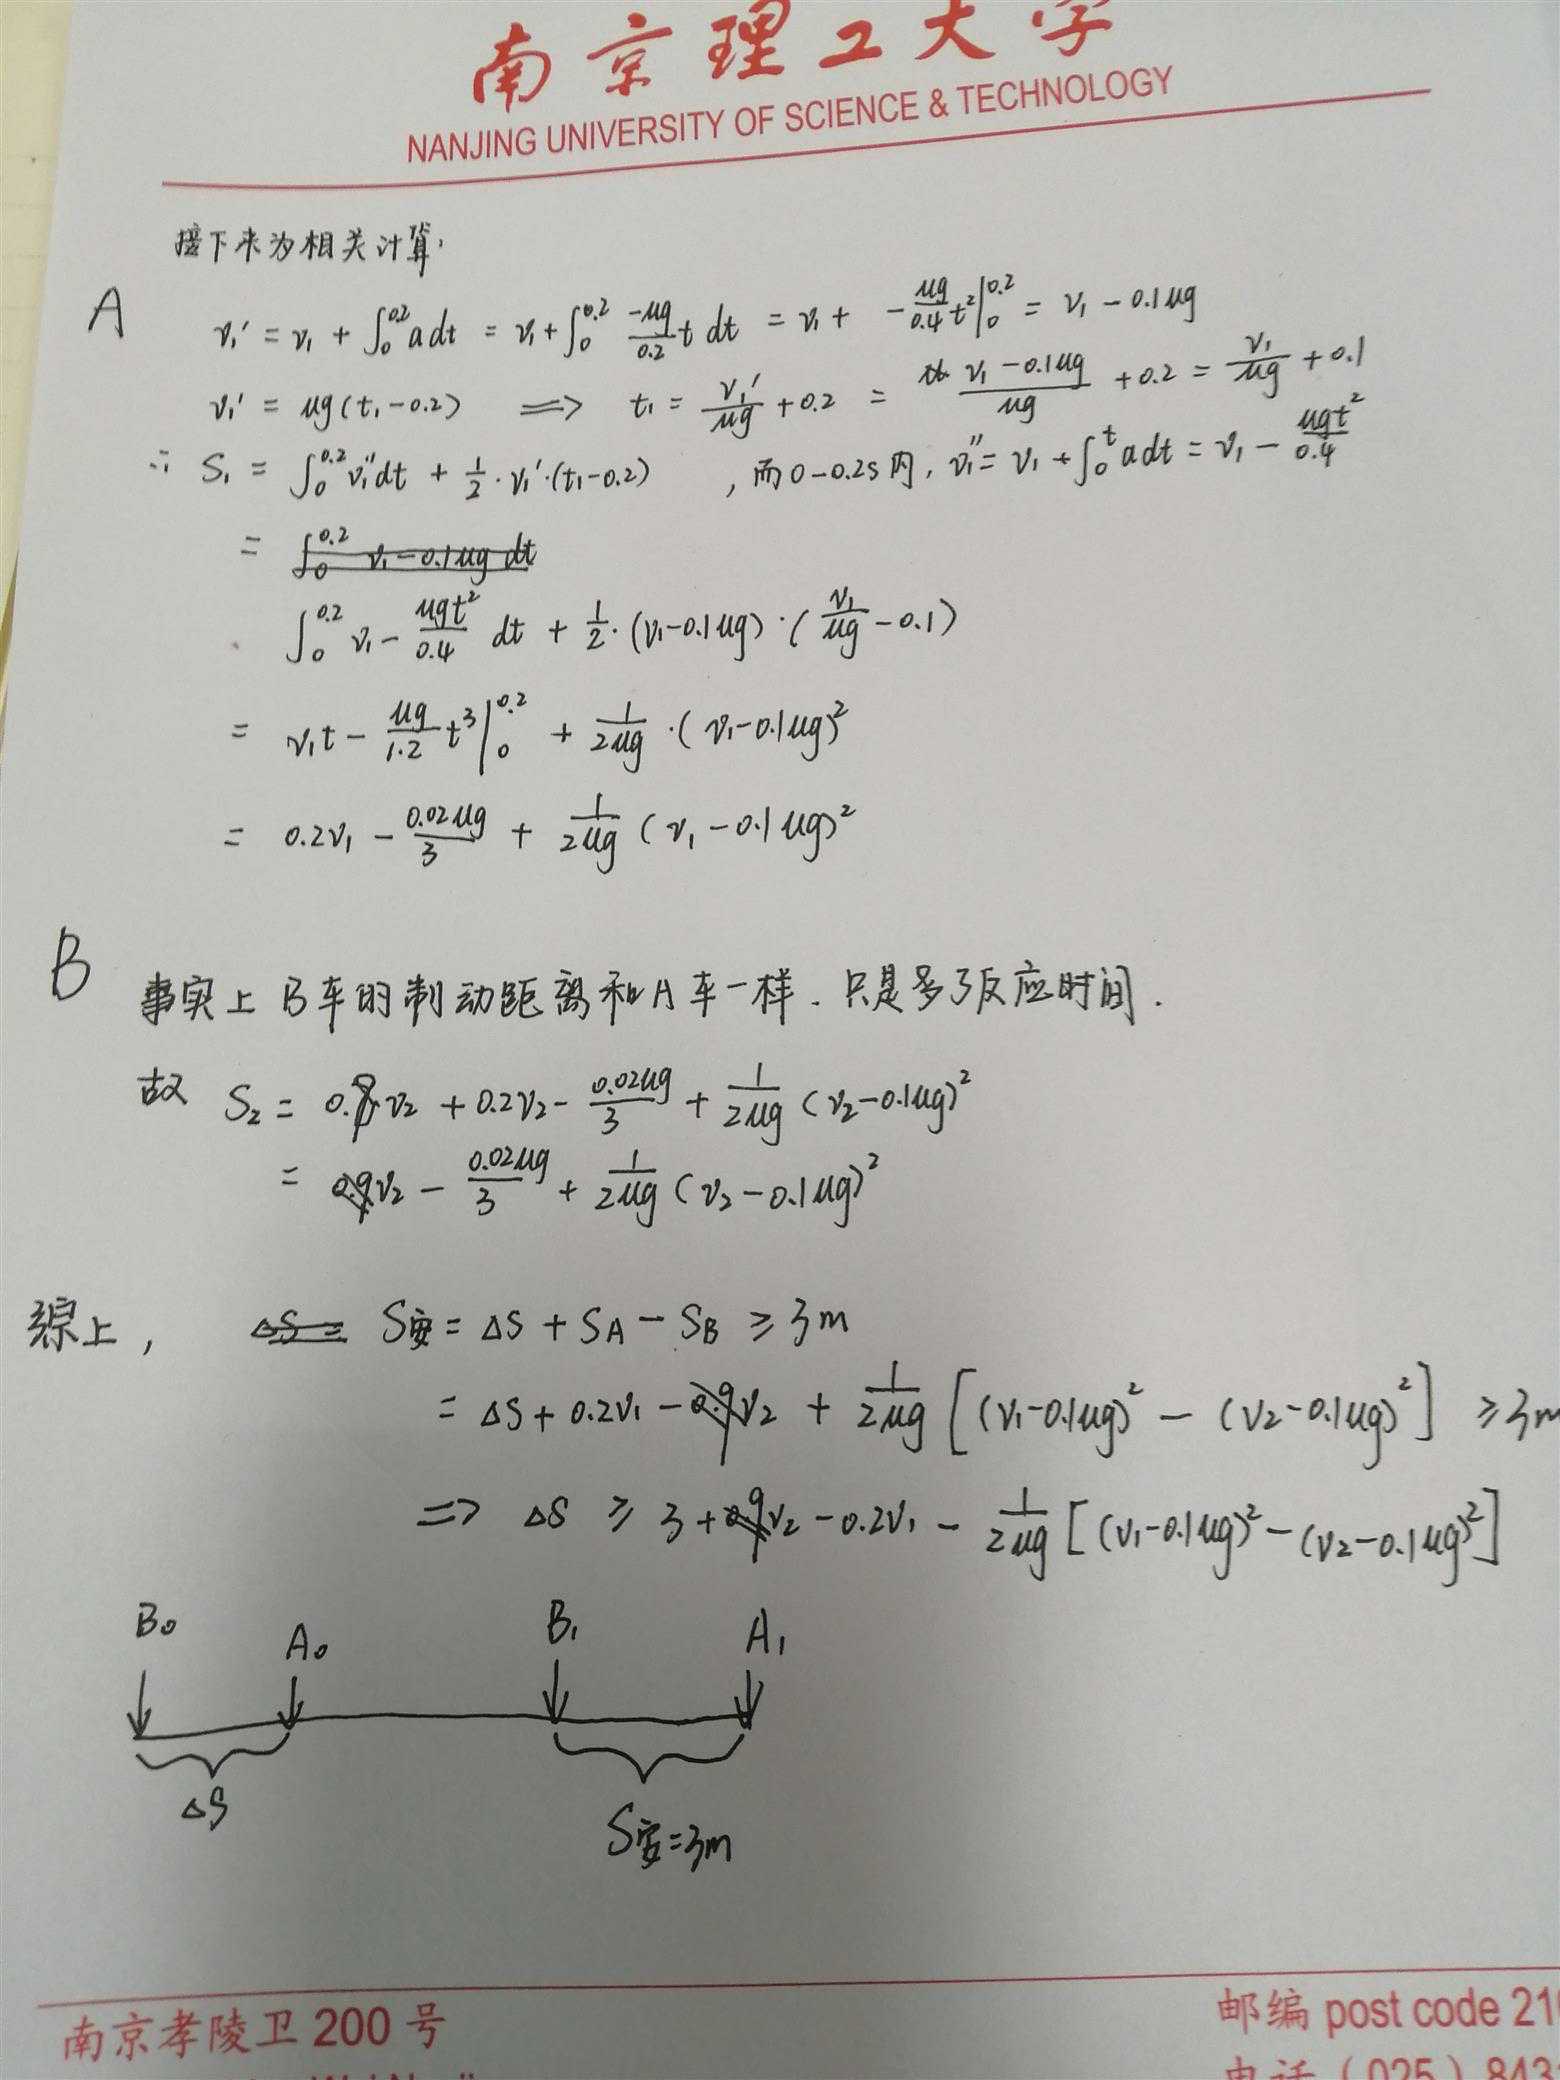 南京理工大学
NANJING UNIVERSITY OF SCIENCE & TECHNOLOGY
接下来为相关计算:
A
v₁' = v₁ + ∫₀^0.2 a dt = v₁ + ∫₀^0.2 -μg/0.2 t dt = v₁ + -μg/0.4 t² |₀^0.2 = v₁ - 0.1μg
v₁' = μg(t₁-0.2) ⟹ t₁ = v₁'/μg + 0.2 = (v₁ - 0.1μg)/μg + 0.2 = v₁/μg + 0.1
∴ S₁ = ∫₀^0.2 v₁'' dt + 1/2 · v₁' · (t₁-0.2) , 而0-0.2s内, v₁'' = v₁ + ∫₀^t a dt = v₁ - μgt²/0.4
= ∫₀^0.2 v₁ - 0.1μg dt
∫₀^0.2 v₁ - μgt²/0.4 dt + 1/2 · (v₁-0.1μg) · (v₁/μg - 0.1)
= v₁t - μg/1.2 t³ |₀^0.2 + 1/2μg · (v₁-0.1μg)²
= 0.2v₁ - 0.02μg/3 + 1/2μg (v₁ - 0.1μg)²
B
事实上B车的制动距离和A车一样.只是多了反应时间.
故 S₂ = v₂ + 0.2v₂ - 0.02μg/3 + 1/2μg (v₂-0.1μg)²
= 0.9v₂ - 0.02μg/3 + 1/2μg (v₂-0.1μg)²
综上, ΔS = S安 = ΔS + SA - SB ≥ 3m
= ΔS + 0.2v₁ - 0.9v₂ + 1/2μg [(v₁-0.1μg)² - (v₂-0.1μg)²] ≥ 3m
⟹ ΔS ≥ 3 + 0.9v₂ - 0.2v₁ - 1/2μg [(v₁-0.1μg)² - (v₂-0.1μg)²]
B₀ A₀ B₁ A₁
ΔS S安=3m
南京孝陵卫 200 号
邮编 post code 21
电话（025）843